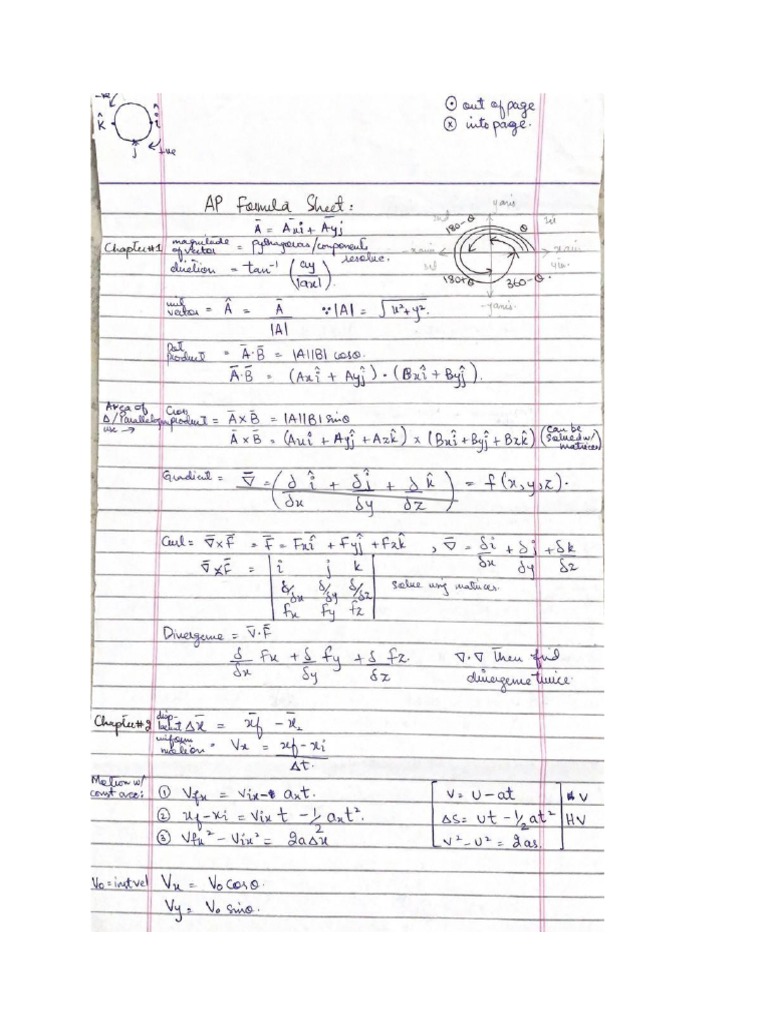 -ve
k̂ î
j +ve
⊙ out of page
⊗ into page.
AP Formula Sheet:
Ā = Axi + Ayj
Chapter#1 magnitude of vector = pythagoras/components resolve.
direction = tan⁻¹ (ay/|ax|)
yaxis
180-θ θ
xaxis
180+θ 360-θ
-yaxis
unit vector = Â = Ā/|A| ∵ |A| = √x²+y².
Dot product = Ā·B̄ = |A||B| cosθ.
Ā·B̄ = (Axî + Ayĵ)·(Bxî + Byĵ).
Area of Δ/Parallelogram use → Cross product = Ā×B̄ = |A||B| sinθ
Ā×B̄ = (Axî + Ayĵ + Azk̂) × (Bxî + Byĵ + Bzk̂) (can be solved w/ matrices)
Gradient = ∇̄ = (δ/δx î + δ/δy ĵ + δ/δz k̂) = f(x,y,z).
Curl = ∇̄×F̄ = F̄ = Fxî + Fyĵ + Fzk̂ , ∇̄ = δi/δx + δj/δy + δk/δz
∇̄×F̄ = | i j k |
| δ/δx δ/δy δ/δz | solve using matrices.
| fx fy fz |
Divergence = ∇̄·F̄
δ/δx fx + δ/δy fy + δ/δz fz. ∇·∇ Then find
divergence twice.
Chapter#2 displ-ment Δx̄ = x̄f - x̄i
uniform motion = Vx = xf - xi / Δt.
Motion w/ const acc: ① Vfx = Vix - axt.
② xf - xi = Vix t - 1/2 axt².
③ Vfx² - Vix² = 2aΔx
V = U - at V
ΔS = Ut - 1/2 at² HV
V² - U² = 2as.
Vo = inst vel Vx = Vo cosθ.
Vy = Vo sinθ.